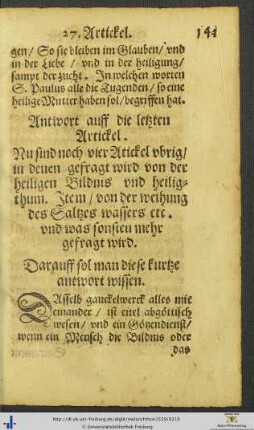 27. Artickel. 141
gen/ So sie bleiben im Glauben/ vnd
in der Liebe/ vnd in der heiligung/
sampt der zucht. In welchen worten
S. Paulus alle die Tugenden/ so eine
heilige Mutter haben sol/ begriffen hat.
Antwort auff die letzten
Artickel.
Nu sind noch vier Atickel vbrig/
in denen gefragt wird von der
heiligen Bildnus vnd heilig-
thum. Item/ von der weihung
des Saltzes wassers etc.
vnd was sonsten mehr
gefragt wird.
Darauff sol man diese kurtze
antwort wissen.
DAsselb gauckelwerck alles mit
einander/ ist eitel abgöttisch
wesen/ vnd ein Götzendienst/
wenn ein Mensch die Bildnis oder
das
http://dl.ub.uni-freiburg.de/diglit/melanchthon1559/0319
© Universitätsbibliothek Freiburg